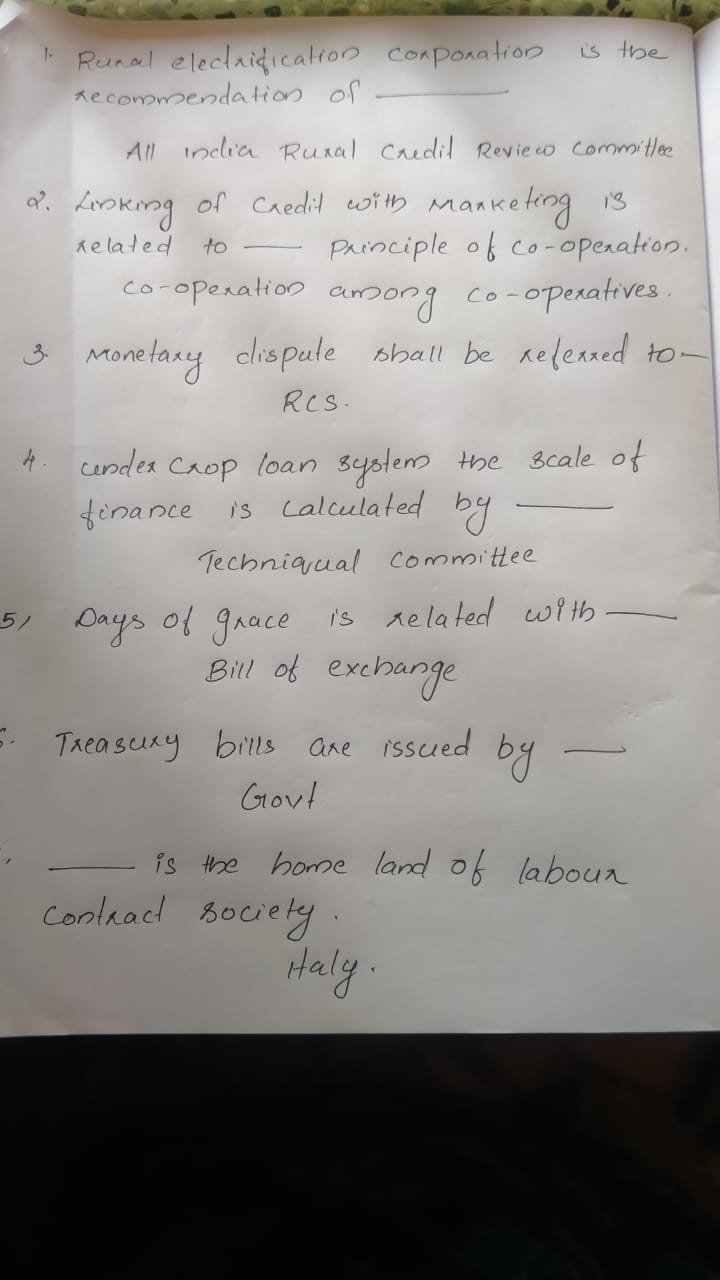 1. Rural electrification corporation is the
recommendation of ———
All india Rural Credit Review Committee
2. Linking of Credit with Marketing is
related to —— principle of co-operation.
co-operation among co-operatives.
3. Monetary dispute shall be referred to —
RCS.
4. under Crop loan system the scale of
finance is calculated by ——
Techniqual committee
5, Days of grace is related with ——
Bill of exchange
Treasury bills are issued by ——
Govt
—— is the home land of labour
contract society.
Italy.